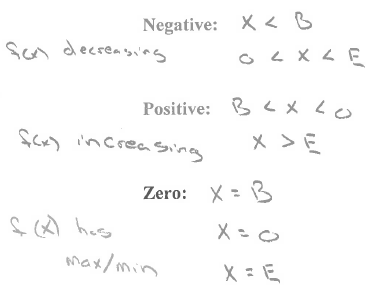 Negative: X < B
f(x) decreasing 0 < X < E
Positive: B < X < 0
f(x) increasing X > E
Zero: X = B
f(x) has X = 0
max/min X = E